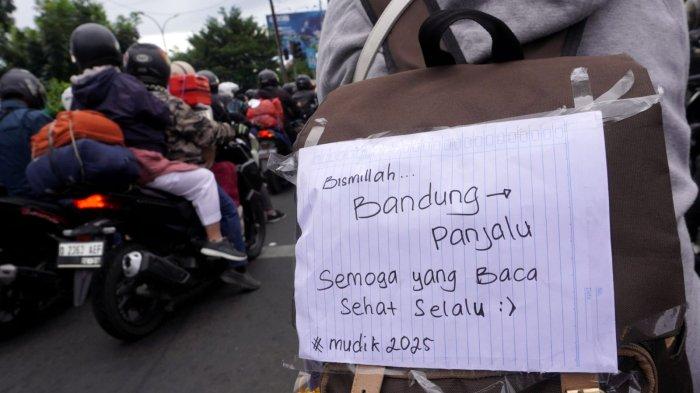 Bismillah...
Bandung →
Panjalu
Semoga yang Baca
Sehat Selalu :)
# mudik 2025